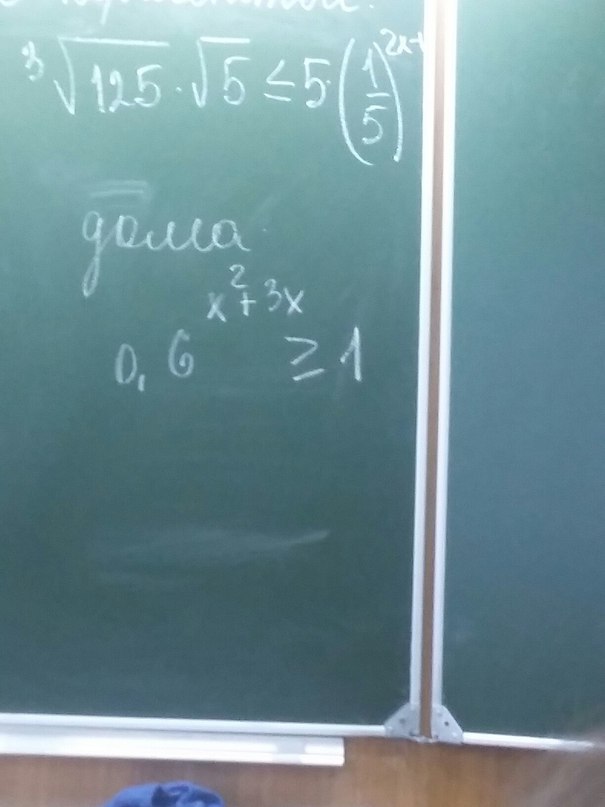 ∛125 · √5 ≤ 5 · (1/5)
дома
0,6^(x²+3x) ≥ 1